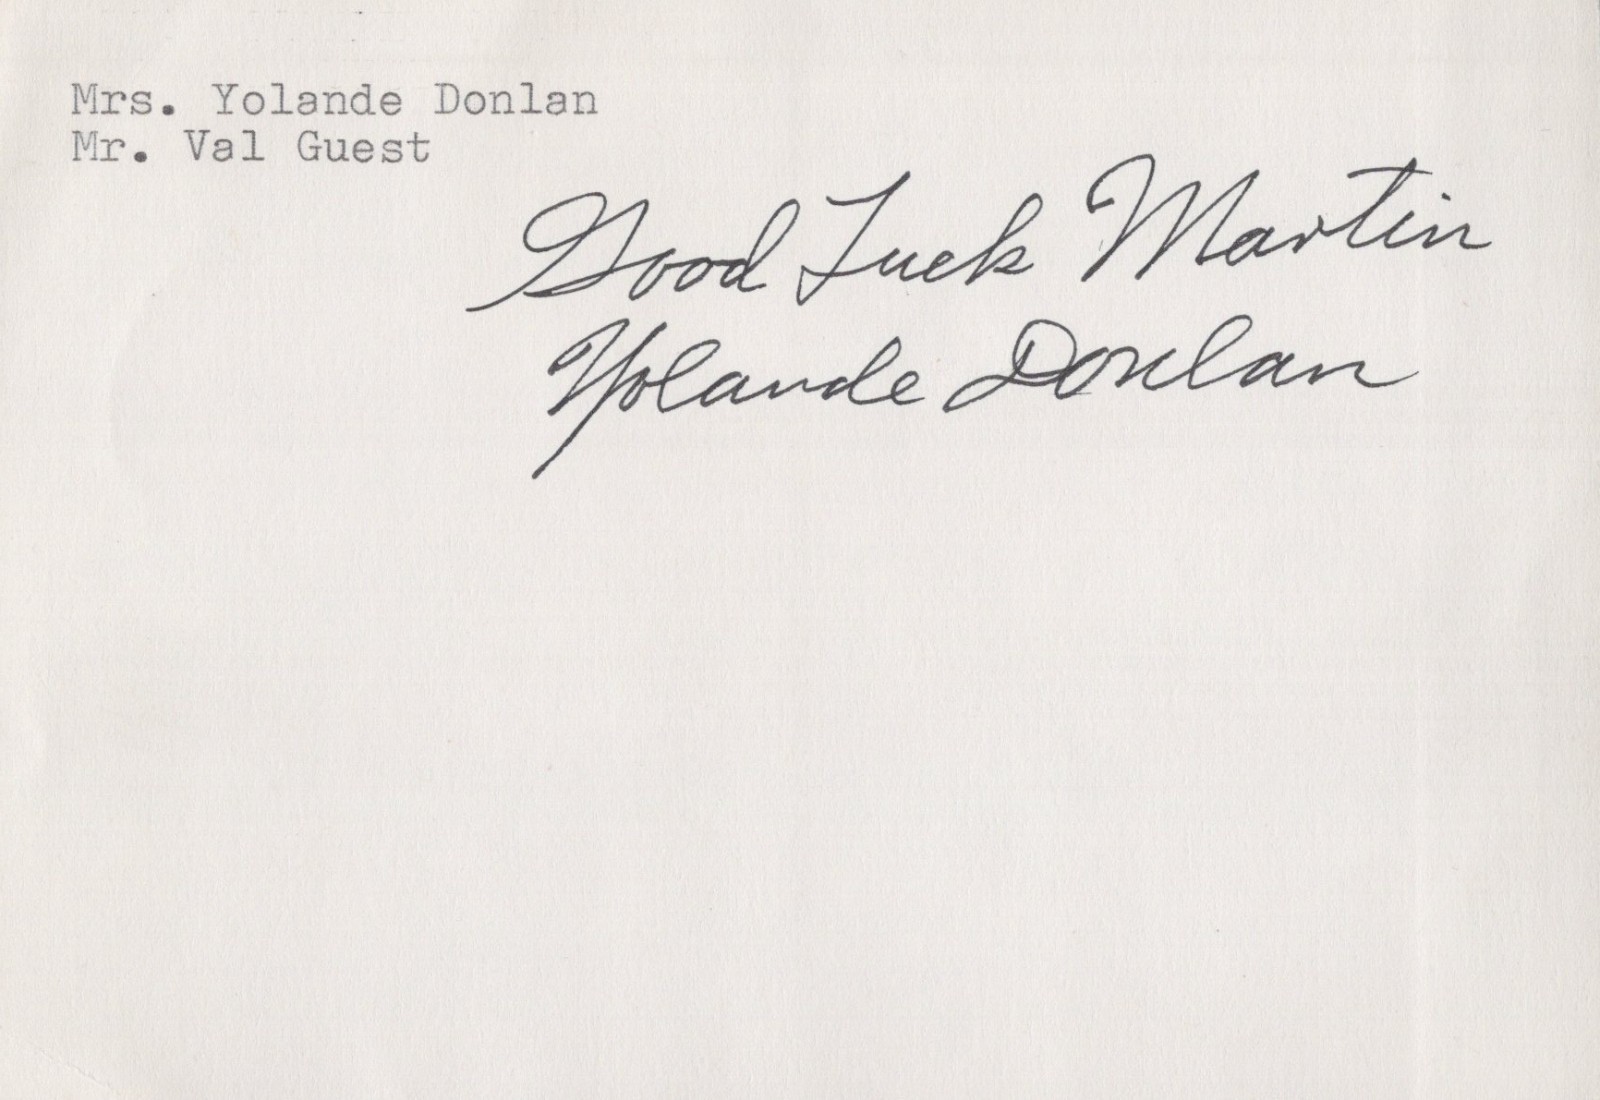 Mrs. Yolande Donlan
Mr. Val Guest
Good Luck Martin
Yolande Donlan